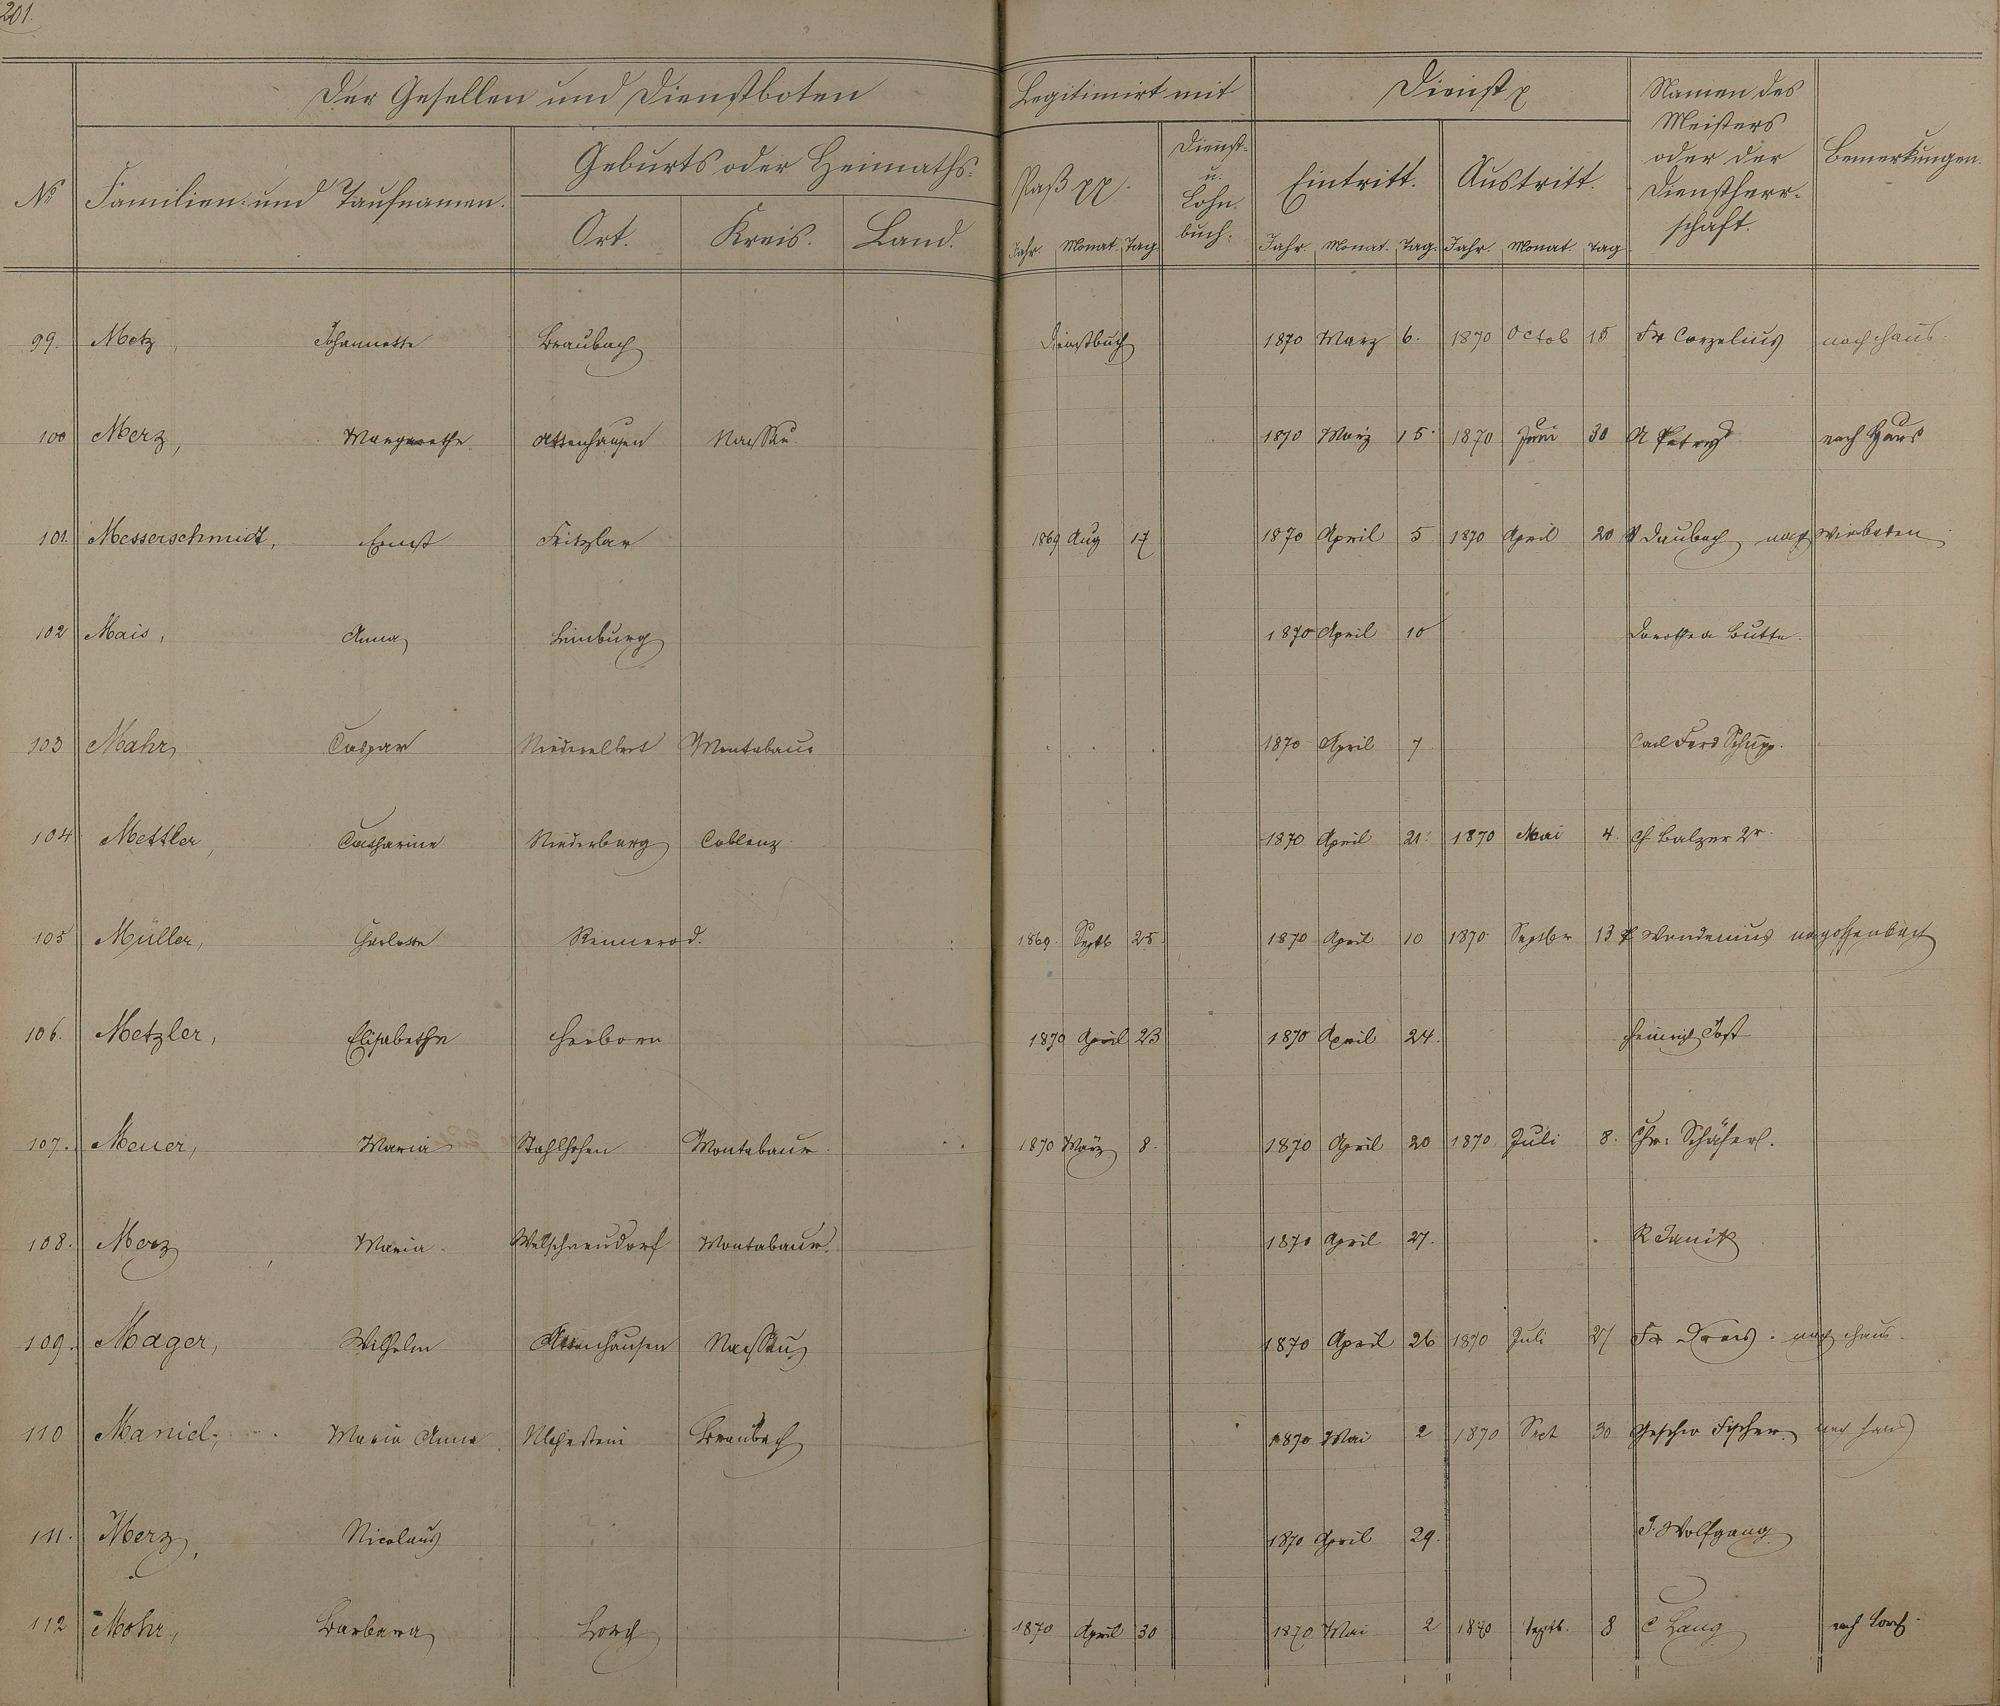 201.
Der Gesellen und Dienstboten Legitimirt mit Dienst
No Familien- und Taufnamen. Geburts oder Heimaths- Paß pp. Dienst- u. Lohn- buch. Eintritt. Austritt. Namen des Meisters oder der Dienstherr- schaft. Bemerkungen.
Ort. Kreis. Land. Jahr. Monat. Tag Jahr. Monat. Tag. Jahr. Monat. Tag
99. Metz, Johannette Braubach Dienstbuch 1870 März 6. 1870 Octob 15 Fr Corzelius nach Haus
100 Merz, Margarethe Attenhausen Nassau 1870 März 15. 1870 Juni 30 A nach Haus
101. Messerschmidt, Ernst Fritzlar 1869 Aug 17 1870 April 5 1870 April 20 Daubach nach Wiesbaden
102 Mais, Anna Limburg 1870 April 10 Dorothea Butte.
103 Mahr, Caspar Niederelbert Montabaur 1870 April 7 Carl Ferd Schupp.
104 Mettler, Catharine Niederberg Coblenz 1870 April 21. 1870 Mai 4. Ch Balzer 2r.
105 Müller, Charlotte Rennerod. 1869. Septb 25. 1870 April 10 1870 Septbr 13 Wendenius
106. Metzler, Elisabethe Herborn 1870 April 23 1870 April 24. Heinrich Jost
107. Meuer, Maria Stahlhofen Montabaur. 1870 März 8. 1870 April 20 1870 Juli 8. Chr: Schäfer.
108. Merz, Maria. Welschneudorf Montabaur. 1870 April 27. R
109. Mager, Wilhelm Attenhausen Nassau 1870 April 26 1870 Juli 27 Fr nach Haus.
110 Manid, Maria Anna Braubach 1870 Mai 2 1870 Sept 30 Geschw Fischer. nach Haus
111. Merz, Nicolaus 1870 April 29. J. Wolfgang.
112 Mohr, Barbara Lorch 1870 April 30 1870 Mai 2 1870 Septb. 8 C Lang nach Lorch